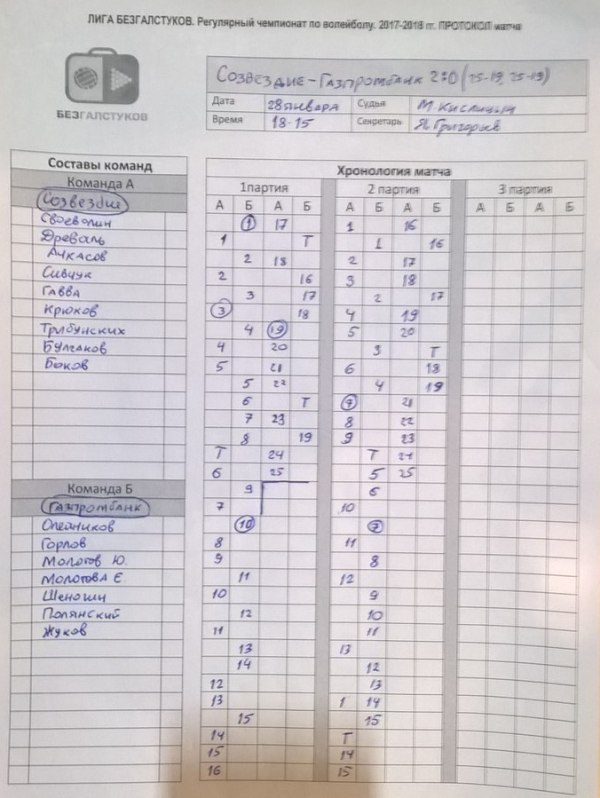 ЛИГА БЕЗГАЛСТУКОВ. Регулярный чемпионат по волейболу. 2017-2018 гг. ПРОТОКОЛ матча
БЕЗГАЛСТУКОВ
Созвездие - Газпромбанк 2:0 (25-19, 25-19)
Дата 28 января Судья М Кислицын
Время 18-15 Секретарь Я Григорьев
Составы команд
Хронология матча
Команда А 1партия 2 партия 3 партия
Созвездие А Б А Б А Б А Б А Б А Б
Своеволин 1 17 1 16
Древаль 1 Т 1 16
Ачкасов 2 18 2 17
Сивчук 2 16 3 18
Гавва 3 17 2 17
Крюков 3 18 4 19
Трибунских 4 19 5 20
Булгаков 4 20 3 Т
Боков 5 21 6 18
5 22 4 19
6 Т 7 21
7 23 8 22
8 19 9 23
Т 24 Т 24
6 25 5 25
Команда Б 9 6
Газпромбанк 7 10
Олейников 10 7
Горлов 8 11
Молотов Ю 9 8
Молотова Е 11 12
10 9
Полянский 12 10
Жуков 11 11
13 13
14 12
12 13
13 1 14
15 15
14 Т
15 14
16 15